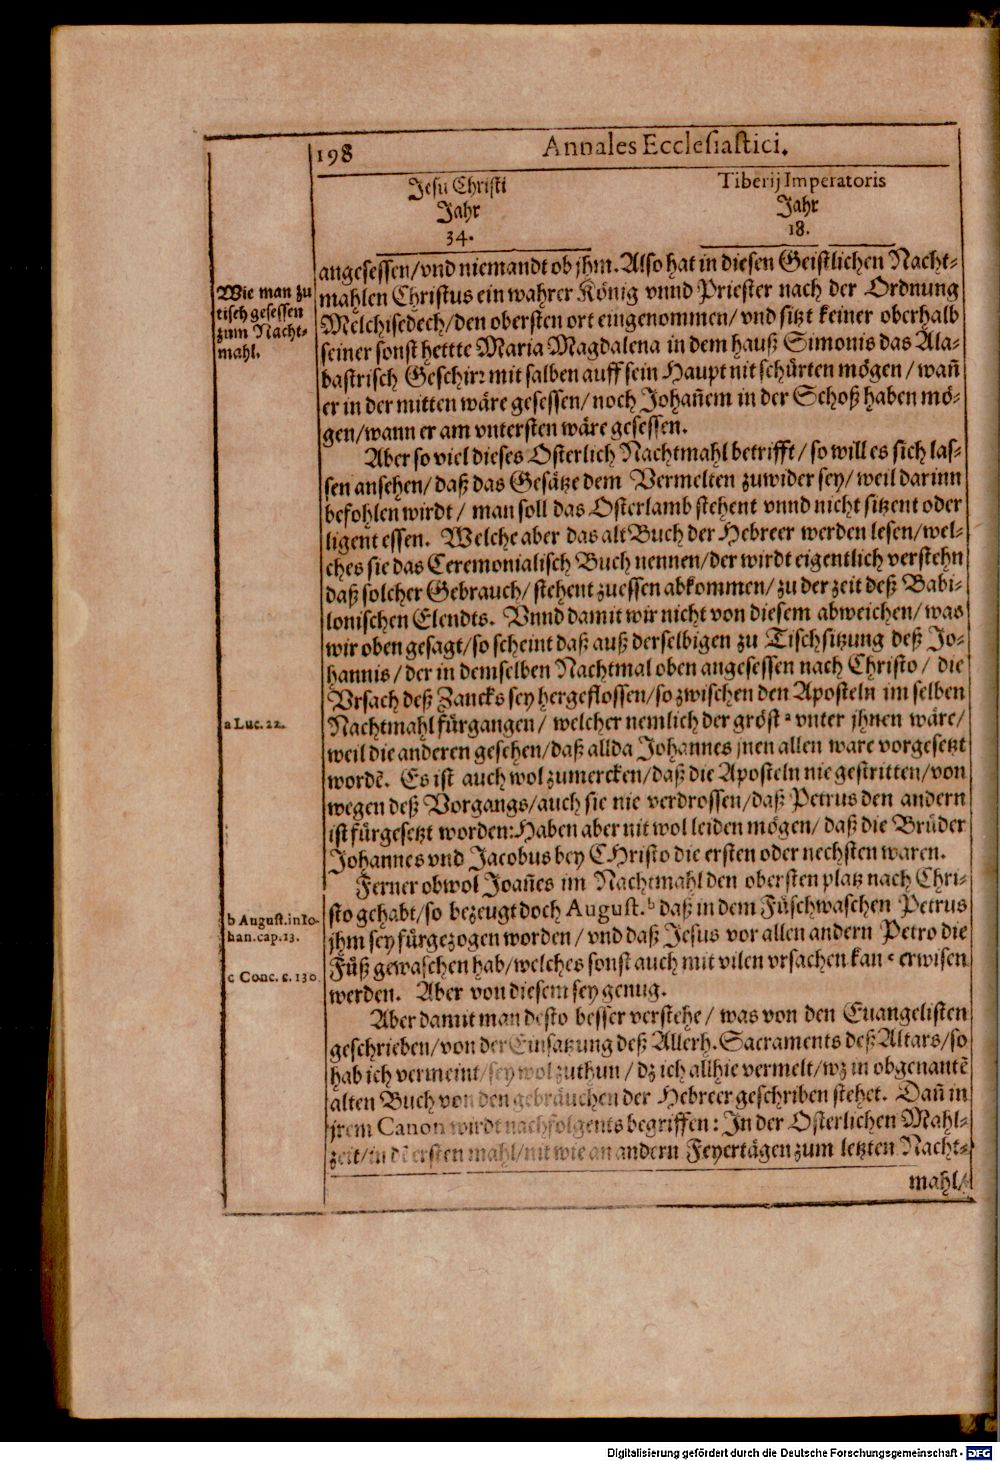 198
Annales Ecclesiastici.
Jesu Christi
Jahr
34.
Tiberij Imperatoris
Jahr
18.
Wie man zu
tisch gesessen
zum Nacht-
mahl.
angesessen/vnd niemandt ob jhm. Also hat in diesen Geistlichen Nacht-
mahlen Christus ein wahrer König vnnd Priester nach der Ordnung
Melchisedech/den obersten ort eingenommen/vnd sitzt keiner oberhalb
seiner sonst hettte Maria Magdalena in dem hauß Simonis das Ala-
bastrisch Geschirr mit salben auff sein Haupt nit schürten mögen/wañ
er in der mitten wäre gesessen/noch Johañem in der Schoß haben mö-
gen/wann er am vntersten wäre gesessen.
Aber so viel dieses Osterlich Nachtmahl betrifft/so will es sich las-
sen ansehen/daß das Gesätze dem Vermelten zuwider sey/weil darinn
befohlen wirdt/man soll das Osterlamb stehent vnnd nicht sitzent oder
ligent essen. Welche aber das alt Buch der Hebreer werden lesen/wel-
ches sie das Ceremonialisch Buch nennen/der wirdt eigentlich verstehn
daß solcher Gebrauch/stehent zuessen abkommen/zu der zeit deß Babi-
lonischen Elendts. Vnnd damit wir nicht von diesem abweichen/was
wir oben gesagt/so scheint daß auß derselbigen zu Tischsitzung deß Jo-
hannis/der in demselben Nachtmal oben angesessen nach Christo/die
Vrsach deß Zancks sey hergeflossen/so zwischen den Aposteln im selben
a Luc. 22.
Nachtmahl fürgangen/welcher nemlich der gröst a vnter jhnen wäre/
weil die anderen gesehen/daß allda Johannes jnen allen ware vorgesetzt
wordẽ. Es ist auch wol zumercken/daß die Aposteln nie gestritten/von
wegen deß Vorgangs/auch sie nie verdrossen/daß Petrus den andern
ist fürgesetzt worden: Haben aber nit wol leiden mögen/daß die Brüder
Johannes vnd Jacobus bey CHristo die ersten oder nechsten waren.
Ferner obwol Joañes im Nachtmahl den obersten platz nach Chri-
b August. in Io-
han. cap. 13.
sto gehabt/so bezeugt doch August. b daß in dem Füschwaschen Petrus
jhm sey fürgezogen worden/vnd daß Jesus vor allen andern Petro die
c Conc. c. 130.
Füß gewaschen hab/welches sonst auch mit vilen vrsachen kan c erwisen
werden. Aber von diesem sey genug.
Aber damit man desto besser verstehe/was von den Euangelisten
geschrieben/von der Einsatzung deß Allerh. Sacraments deß Altars/so
hab ich vermeint/sey wol zuthun/dz ich allhie vermelt/wz in obgenantẽ
alten Buch von den gebräuchen der Hebreer geschriben stehet. Dañ in
jrem Canon wirdt nachfolgents begriffen: In der Osterlichen Mahl-
zeit/in dẽ ersten mahl/nit wie an andern Feyertägen zum letzten Nacht-
mahl/
Digitalisierung gefördert durch die Deutsche Forschungsgemeinschaft - DFG